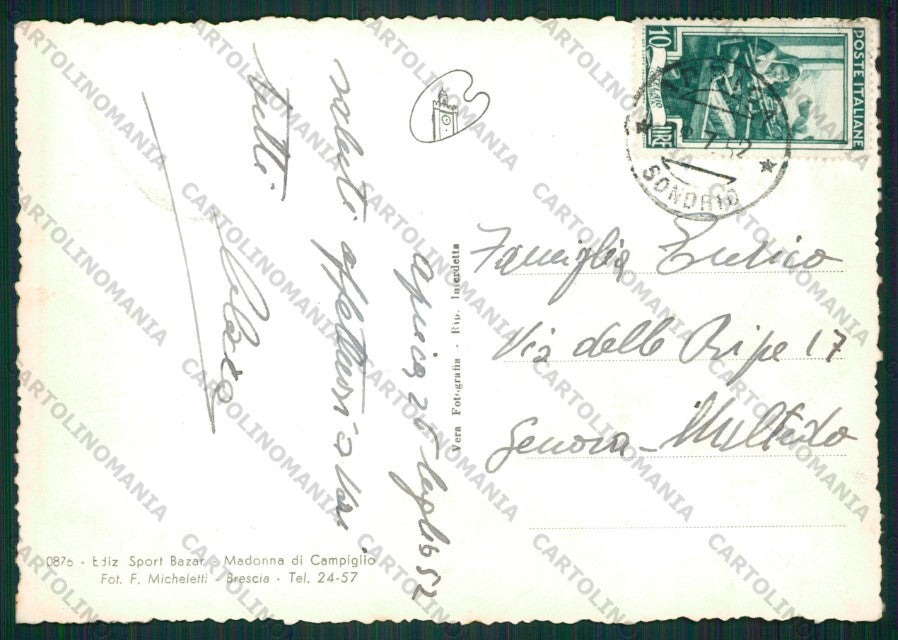 Aprica 26 luglio 52
saluti affettuosi a voi
tutti
Vera Fotografia - Rip. Interdetta
0876 - Ediz Sport Bazar - Madonna di Campiglio
Fot. F. Micheletti - Brescia - Tel. 24-57
10
LIRE
POSTE ITALIANE
7.52
SONDRIO
Famiglia
Via delle Ripe 17
Genova - Multedo
CARTOLINOMANIA